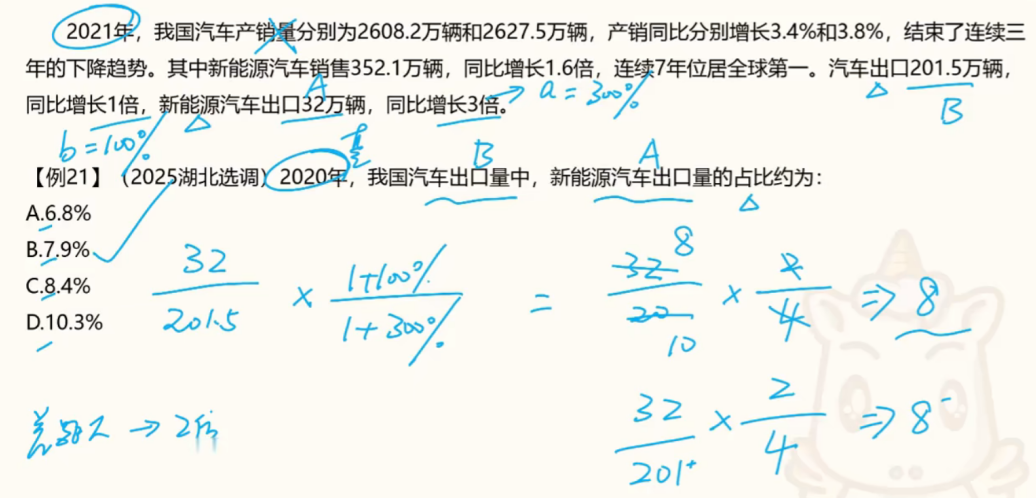 2021年，我国汽车产销量分别为2608.2万辆和2627.5万辆，产销同比分别增长3.4%和3.8%，结束了连续三
年的下降趋势。其中新能源汽车销售352.1万辆，同比增长1.6倍，连续7年位居全球第一。汽车出口201.5万辆，
同比增长1倍，新能源汽车出口32万辆，同比增长3倍。 → a = 300%
A B
b = 100%
B A
【例21】（2025湖北选调）2020年，我国汽车出口量中，新能源汽车出口量的占比约为：
A.6.8%
B.7.9%
C.8.4%
D.10.3%
32/201.5 × (1+100%)/(1+300%) = 32 8/20 10 × 2/4 ⇒ 8
32/201⁺ × 2/4 ⇒ 8⁻
差距大 → 2倍